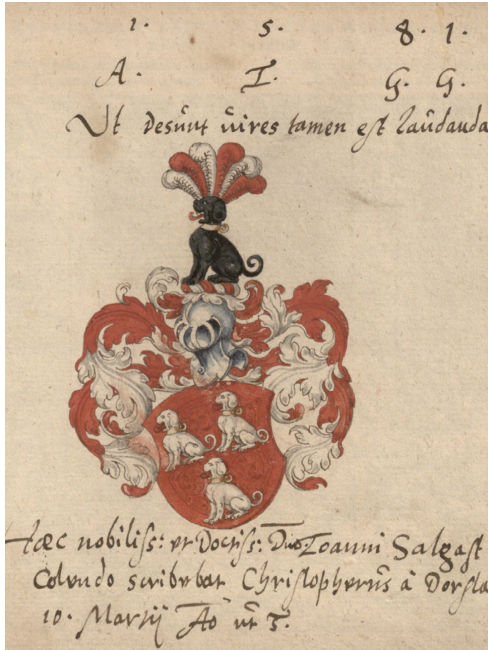 1. 5. 8. 1.
A. I. G. G.
Ut desunt vires tamen est laudanda
Hæc nobiliss: et Doctiss: Dno Ioanni Salgast
Colendo scribebat Christopherus à Dorsla
10. Martij Aõ ut s.